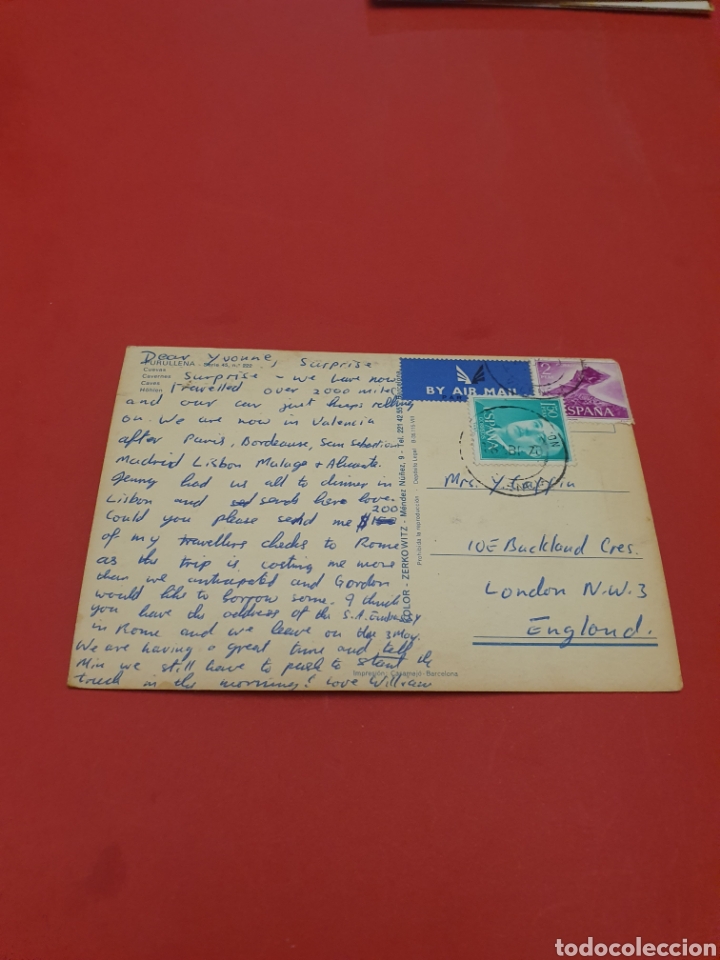 Dear Yvonne, Surprise
PURULLENA - Serie 45, n.º
Cuevas
Cavernes
Caves
Höhlen
Surprise - we have now
travelled over 2000 miles
and our car just keeps rolling
on. We are now in Valencia
after Paris, Bordeause, San Sebastian
Madrid Lisbon Malaga + Alicante.
Jenny had us all to dinner in
Lisbon and sends here love.
Could you please send me $ 200
of my travellers checks to Rome
as the trip is costing me more
than we anticipated and Gordon
would like to borrow some. I think
you have the address of the S.A. Embassy
in Rome and we leave on the 3 May.
We are having a great time and tell
Min we still have to push to start the
truck in the mornings! Love William
Impresión: Casagrajó-Barcelona
COLOR - ZERKOWITZ - Méndez Núñez, 9 - Tel. 221 42 55 Barcelona
Prohibida la reproducción Depósito Legal
BY AIR MAIL
PAR AVION
2
ESPAÑA
ESPAÑA
Mrs. Y.
10E Buckland Cres.
London N.W.3
England.
todocoleccion